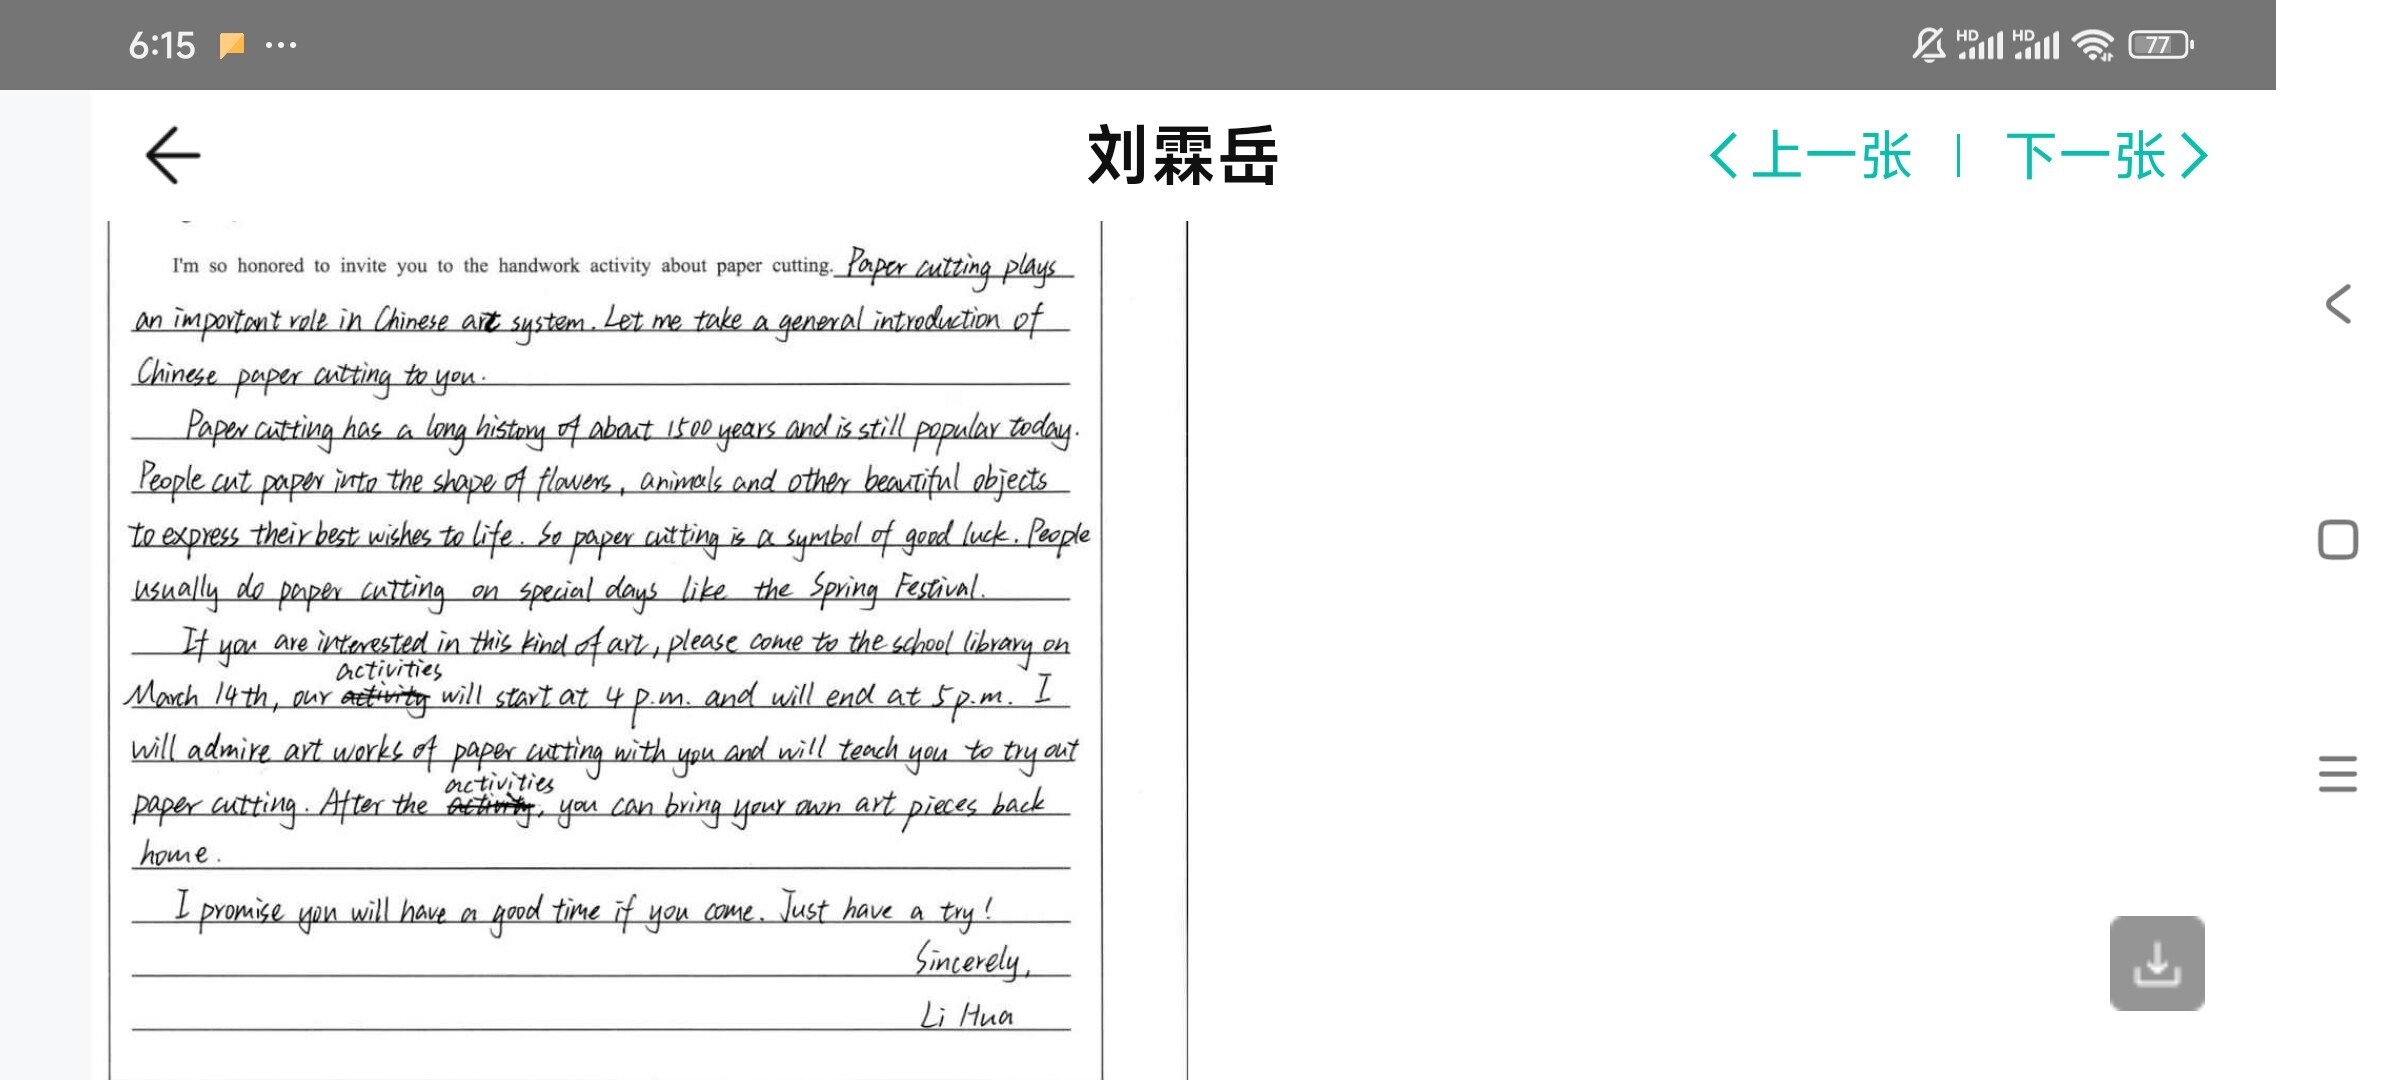 6:15
HD HD 77
刘霖岳
上一张 | 下一张
I'm so honored to invite you to the handwork activity about paper cutting. Paper cutting plays
an important role in Chinese art system. Let me take a general introduction of
Chinese paper cutting to you.
Paper cutting has a long history of about 1500 years and is still popular today.
People cut paper into the shape of flowers, animals and other beautiful objects
to express their best wishes to life. So paper cutting is a symbol of good luck. People
usually do paper cutting on special days like the Spring Festival.
If you are interested in this kind of art, please come to the school library on
activities
March 14th, our activity will start at 4 p.m. and will end at 5 p.m. I
will admire art works of paper cutting with you and will teach you to try out
activities
paper cutting. After the activity, you can bring your own art pieces back
home.
I promise you will have a good time if you come. Just have a try!
Sincerely,
Li Hua